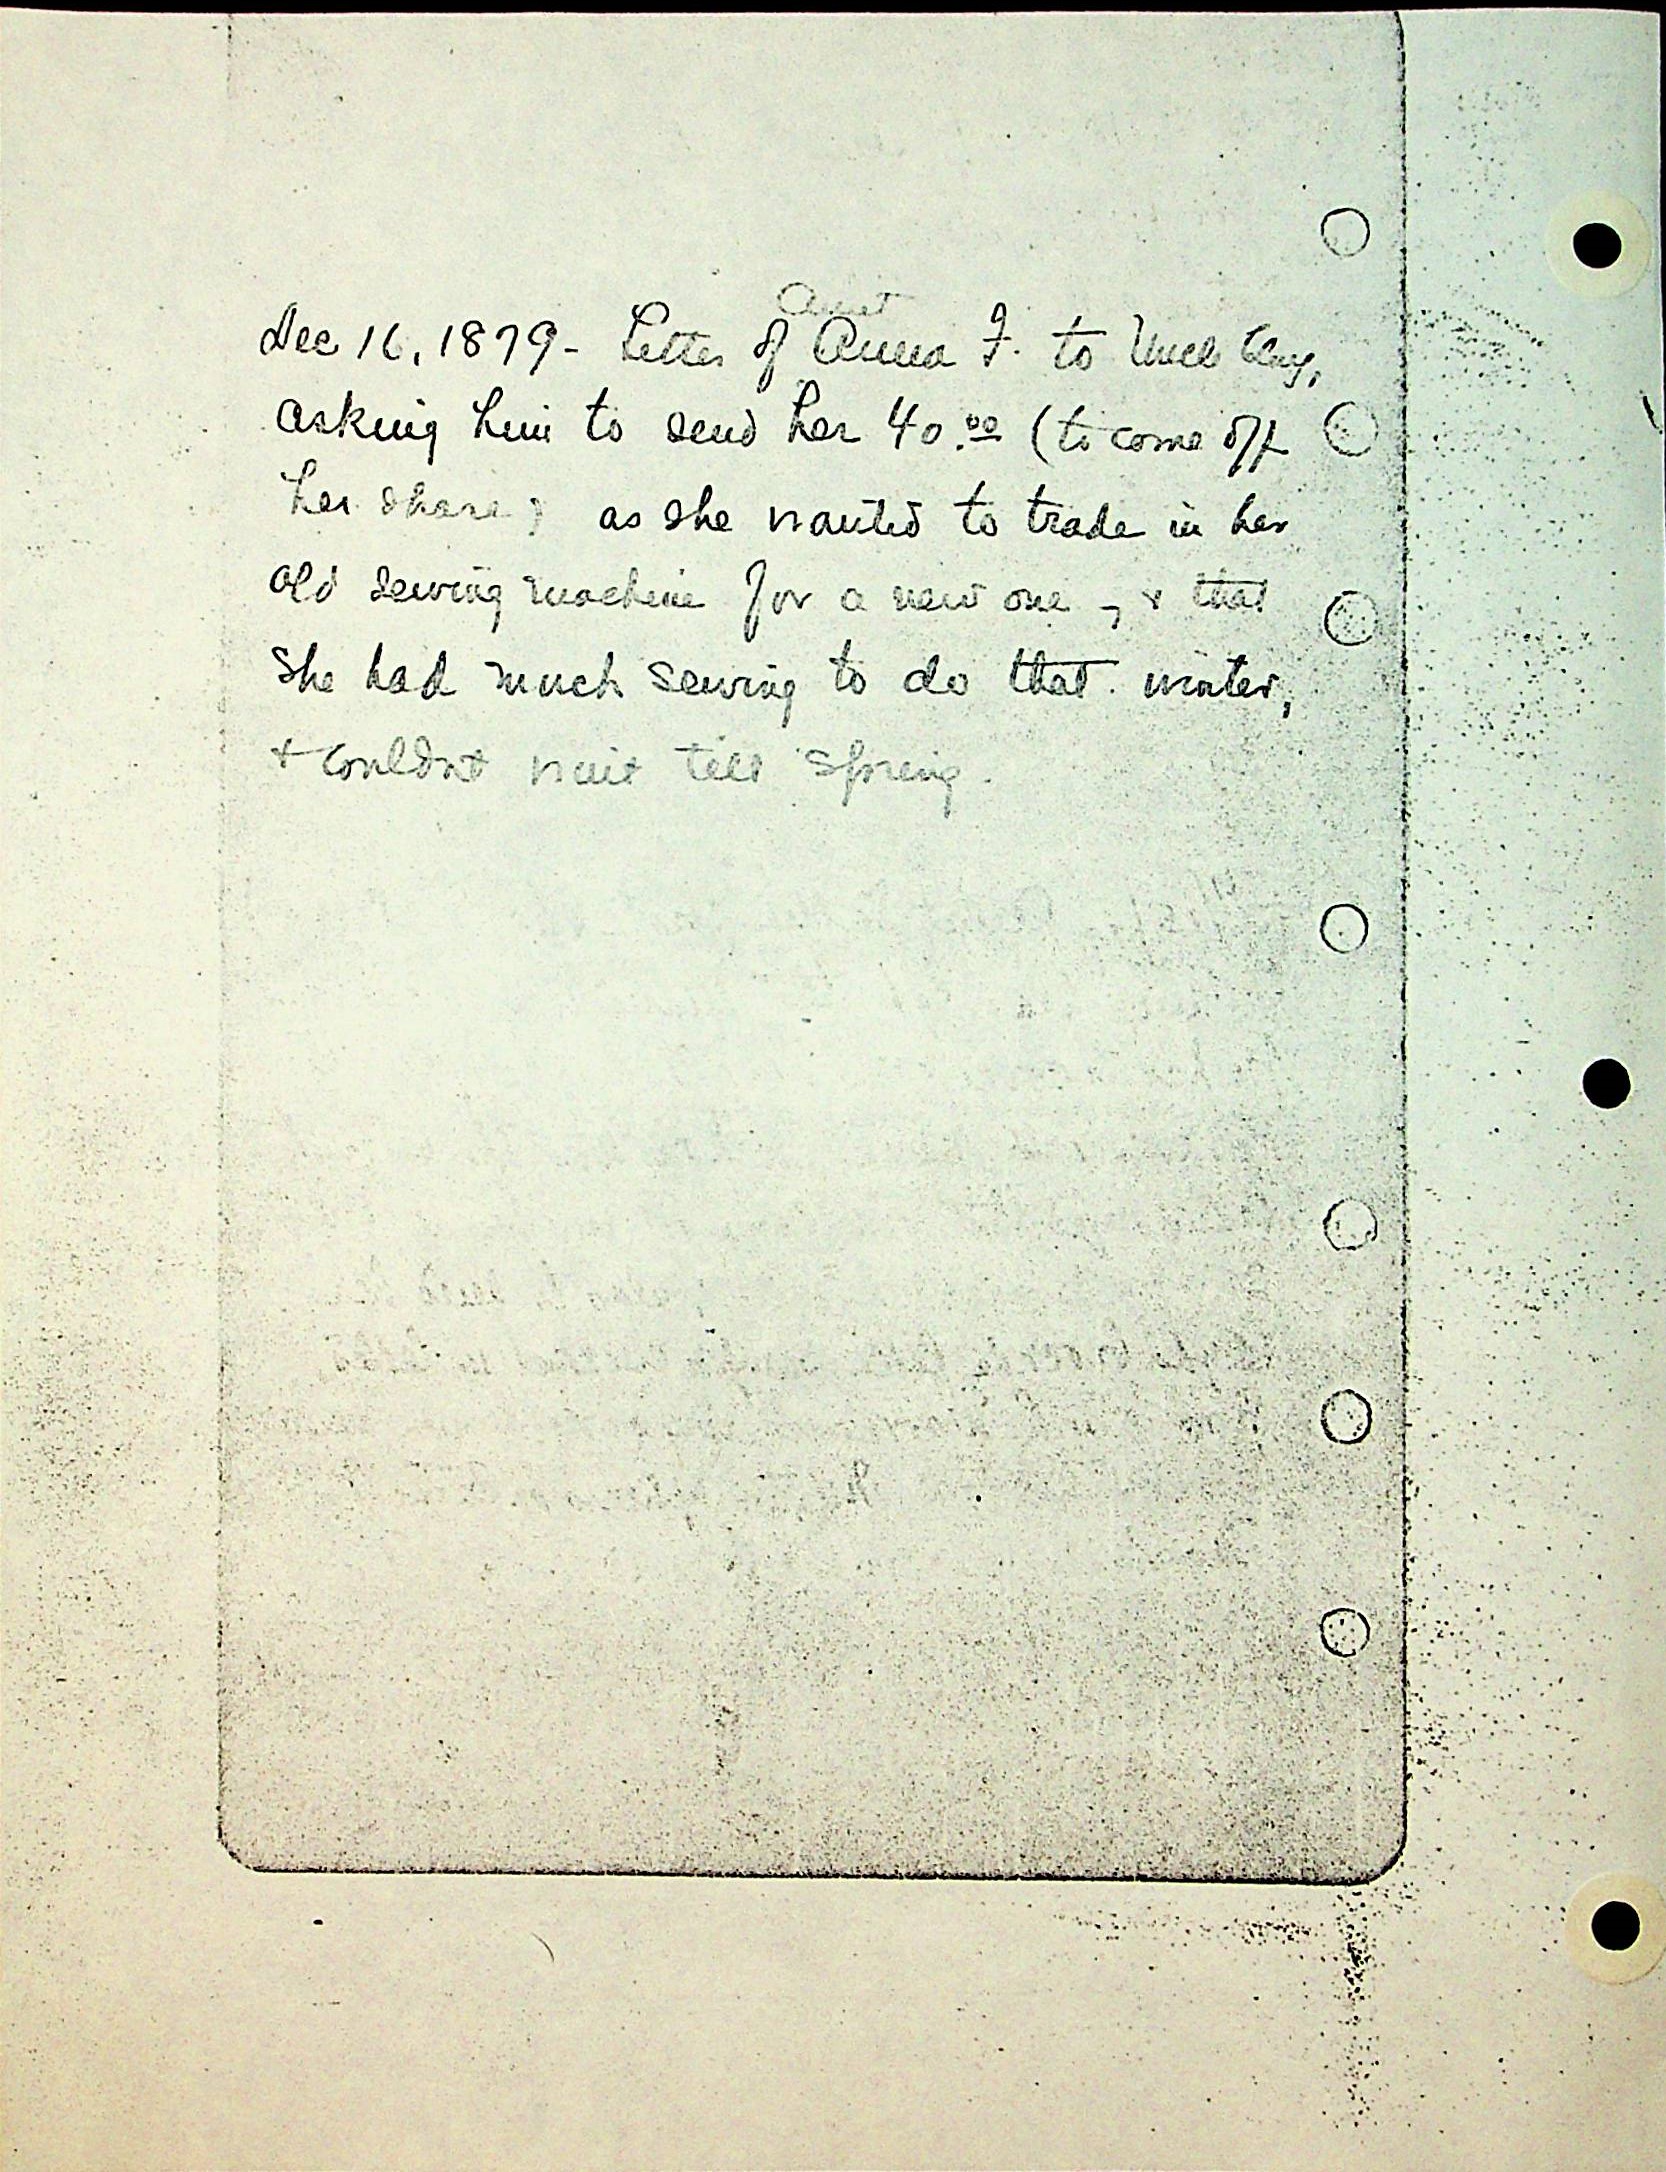 Aunt
Dec 16, 1879 - Letter of Anna F. to Uncle Clay,
asking him to send her 40.00 (to come off
her share) as she wanted to trade in her
old sewing machine for a new one, & that
she had much sewing to do that winter,
& couldn't wait till spring.